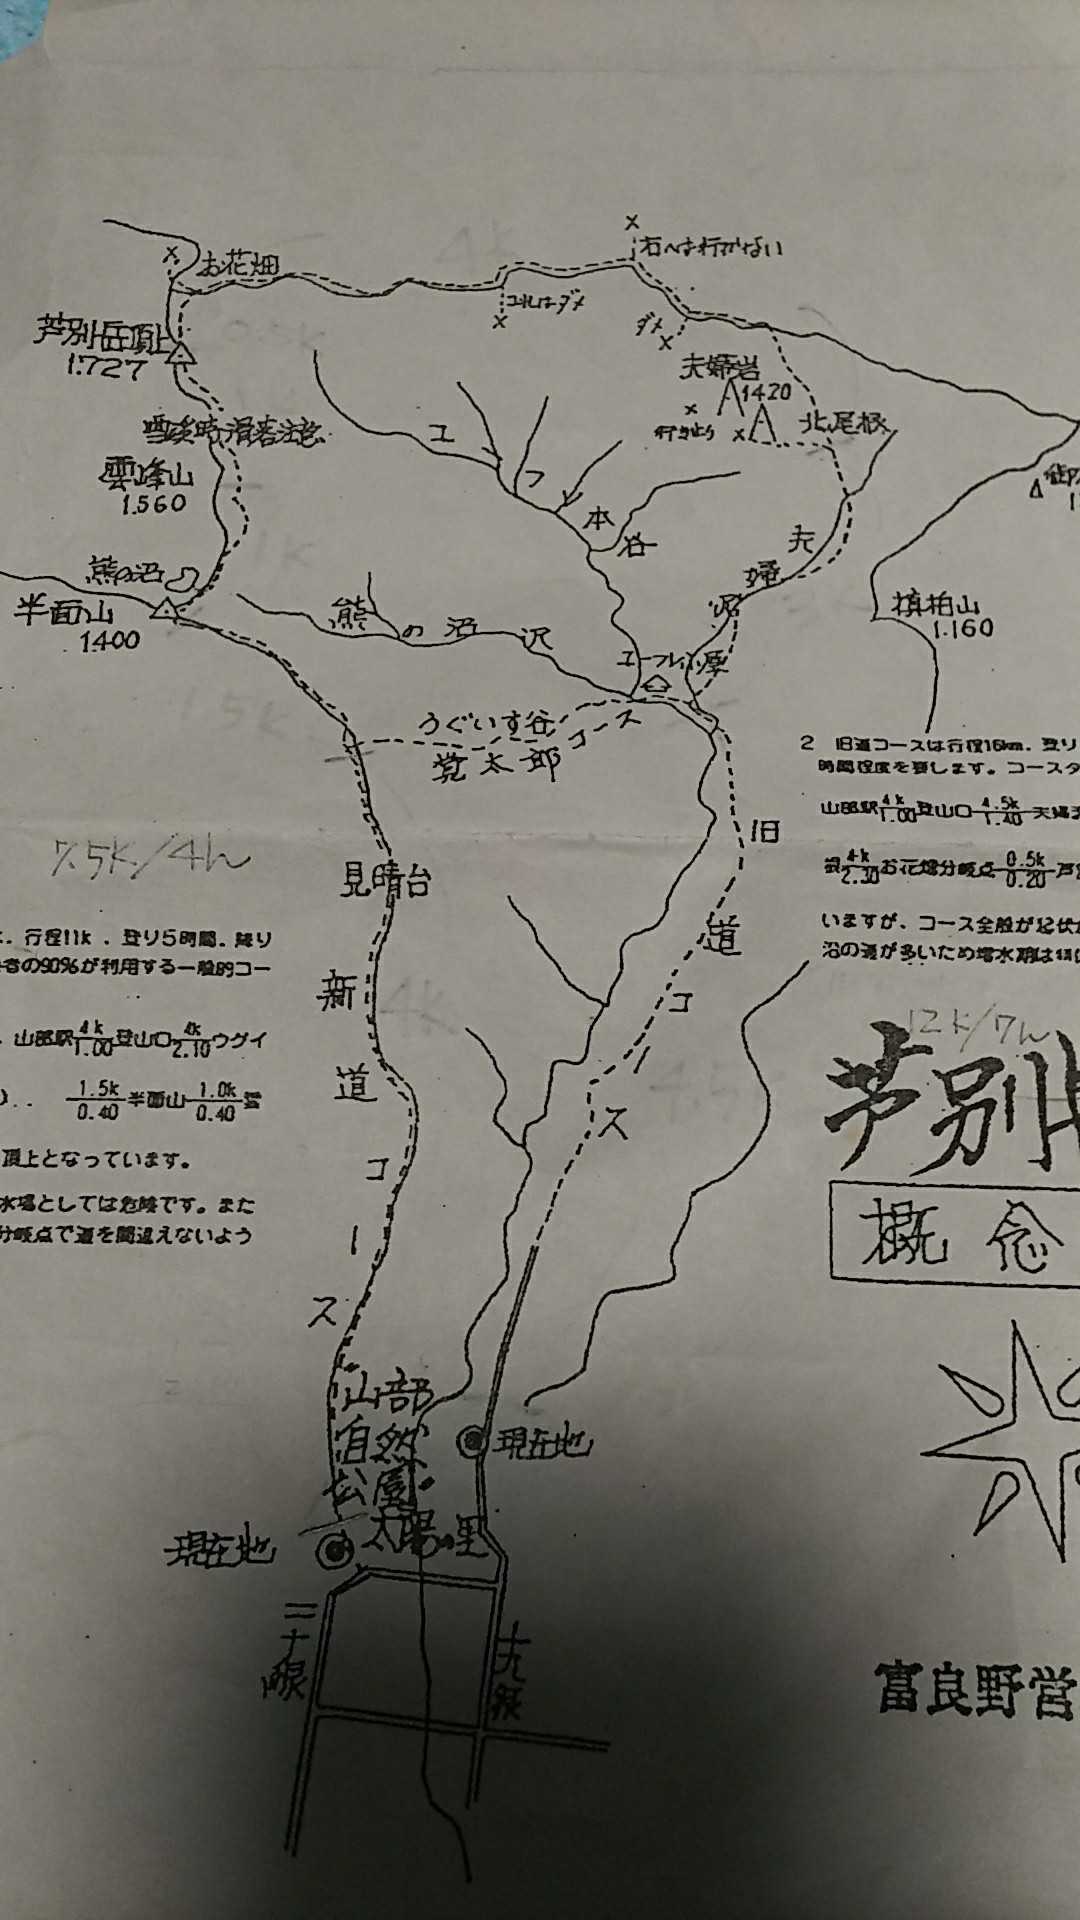 右へは行かない
お花畑
これはダメ
ダメ
芦別岳頂上
1.727
夫婦岩
1420
行き止り
北尾根
雪渓時滑落注意
雲峰山
1.560
ユーフレ本谷
夫婦沢
熊の沼
半面山
1.400
熊の沼沢
槙柏山
1.160
ユーフレ小屋
うぐいす谷
覚太郎コース
2 旧道コースは行程16km.登り
時間程度を要します。コースタ
山部駅 4k/1.00 登山口 4.5k/1.40
4k/2.30 お花畑分岐点 0.5k/0.20
いますが、コース全般が
沿の道が多いため増水期は
旧道コース
7.5K/4h
見晴台
行程11k.登り5時間.降り
者の90%が利用する一般的コー
山部駅 4k/1.00 登山口 4k/2.10 ウグイ
1.5k/0.40 半面山 1.0k/0.40 雲
頂上となっています。
水場としては危険です。また
分岐点で道を間違えないよう
新道コース
12k/7h
芦別
概念
山部
自然
公園
太陽の里
現在地
現在地
二十線
十九線
富良野営